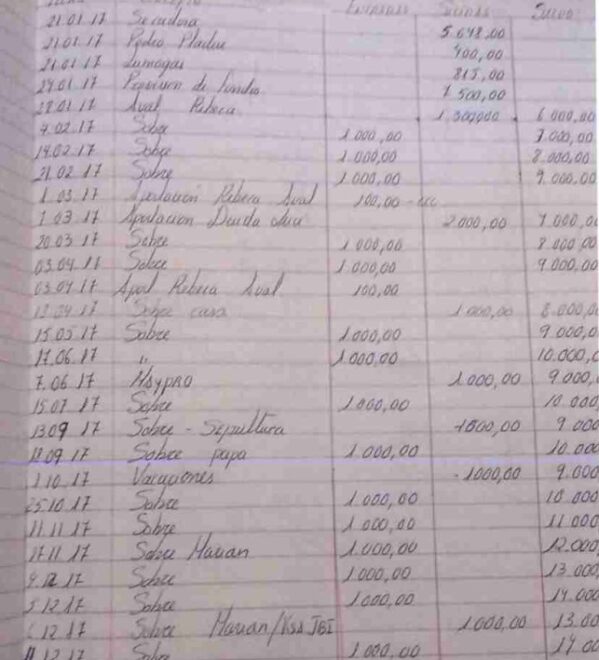 Ingresos Salidas Saldo
21.01.17 Secadora 5.648,00
21.01.17 Pedro 400,00
21.01.17 815,00
24.01.17 de fondos 1.500,00
28.01.17 Aval Rebeca 1.300,00 6.000,00
4.02.17 Sobre 1.000,00 7.000,00
14.02.17 Sobre 1.000,00 8.000,00
21.02.17 Sobre 1.000,00 9.000,00
1.03.17 Aportacion Rebeca Aval 100,00
1.03.17 Aportacion Deuda 2000,00 7.000,0
20.03.17 Sobre 1.000,00 8.000,00
03.04.17 Sobre 1.000,00 9.000,00
03.04.17 Apol Rebeca Aval 100,00
Sobre casa 1.000,00 8.000,0
15.05.17 Sobre 1.000,00 9.000,0
17.06.17 " 1.000,00 10.000,0
7.06.17 HSYPRO 1.000,00 9.000,
15.07.17 Sobre 1.000,00 10.000
13.09 17 Sobre - Sepultura -1000,00 9.000
18.09 17 Sobre papa 1.000,00 10.000
1.10.17 Vacaciones -1000,00 9.000
25.10.17 Sobre 1.000,00 10.000
11.11.17 Sobre 1.000,00 11.000
17.11.17 Sobre Marian 1.000,00 12.000
9.12.17 Sobre 1.000,00 13.000
5.12.17 Sobre 1.000,00 14.000
6.12.17 Sobre Marian/ 1.000,00 13.00
11.12.17 Sobre 1.000,00 14.00